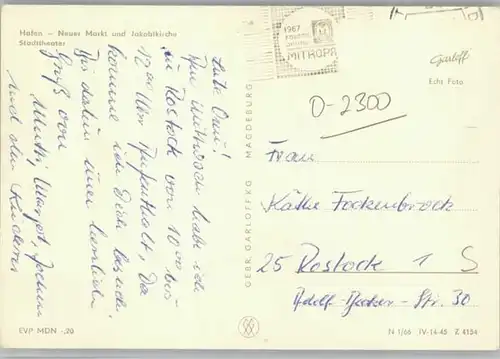 Hafen – Neuer Markt und Jakobikirche
Stadttheater
Liebe Omi!
Am Mittwoch habe ich
in Rostock von 10.00 bis
12.00 Uhr Aufenthalt, da
komme ich Dich besuchen.
Bis dahin einen herzlichen
Gruß von
Mutti, Margot, Jochen
und den Kindern
GEBR. GARLOFF KG MAGDEBURG
1967
MITROPA
Garloff
Echt Foto
D-2300
Frau
Käthe Fockenbrock
25 Rostock 1 S
Adolf-Becker-Str. 30
EVP MDN -,20
N 1/66 IV-14-45 Z 4154